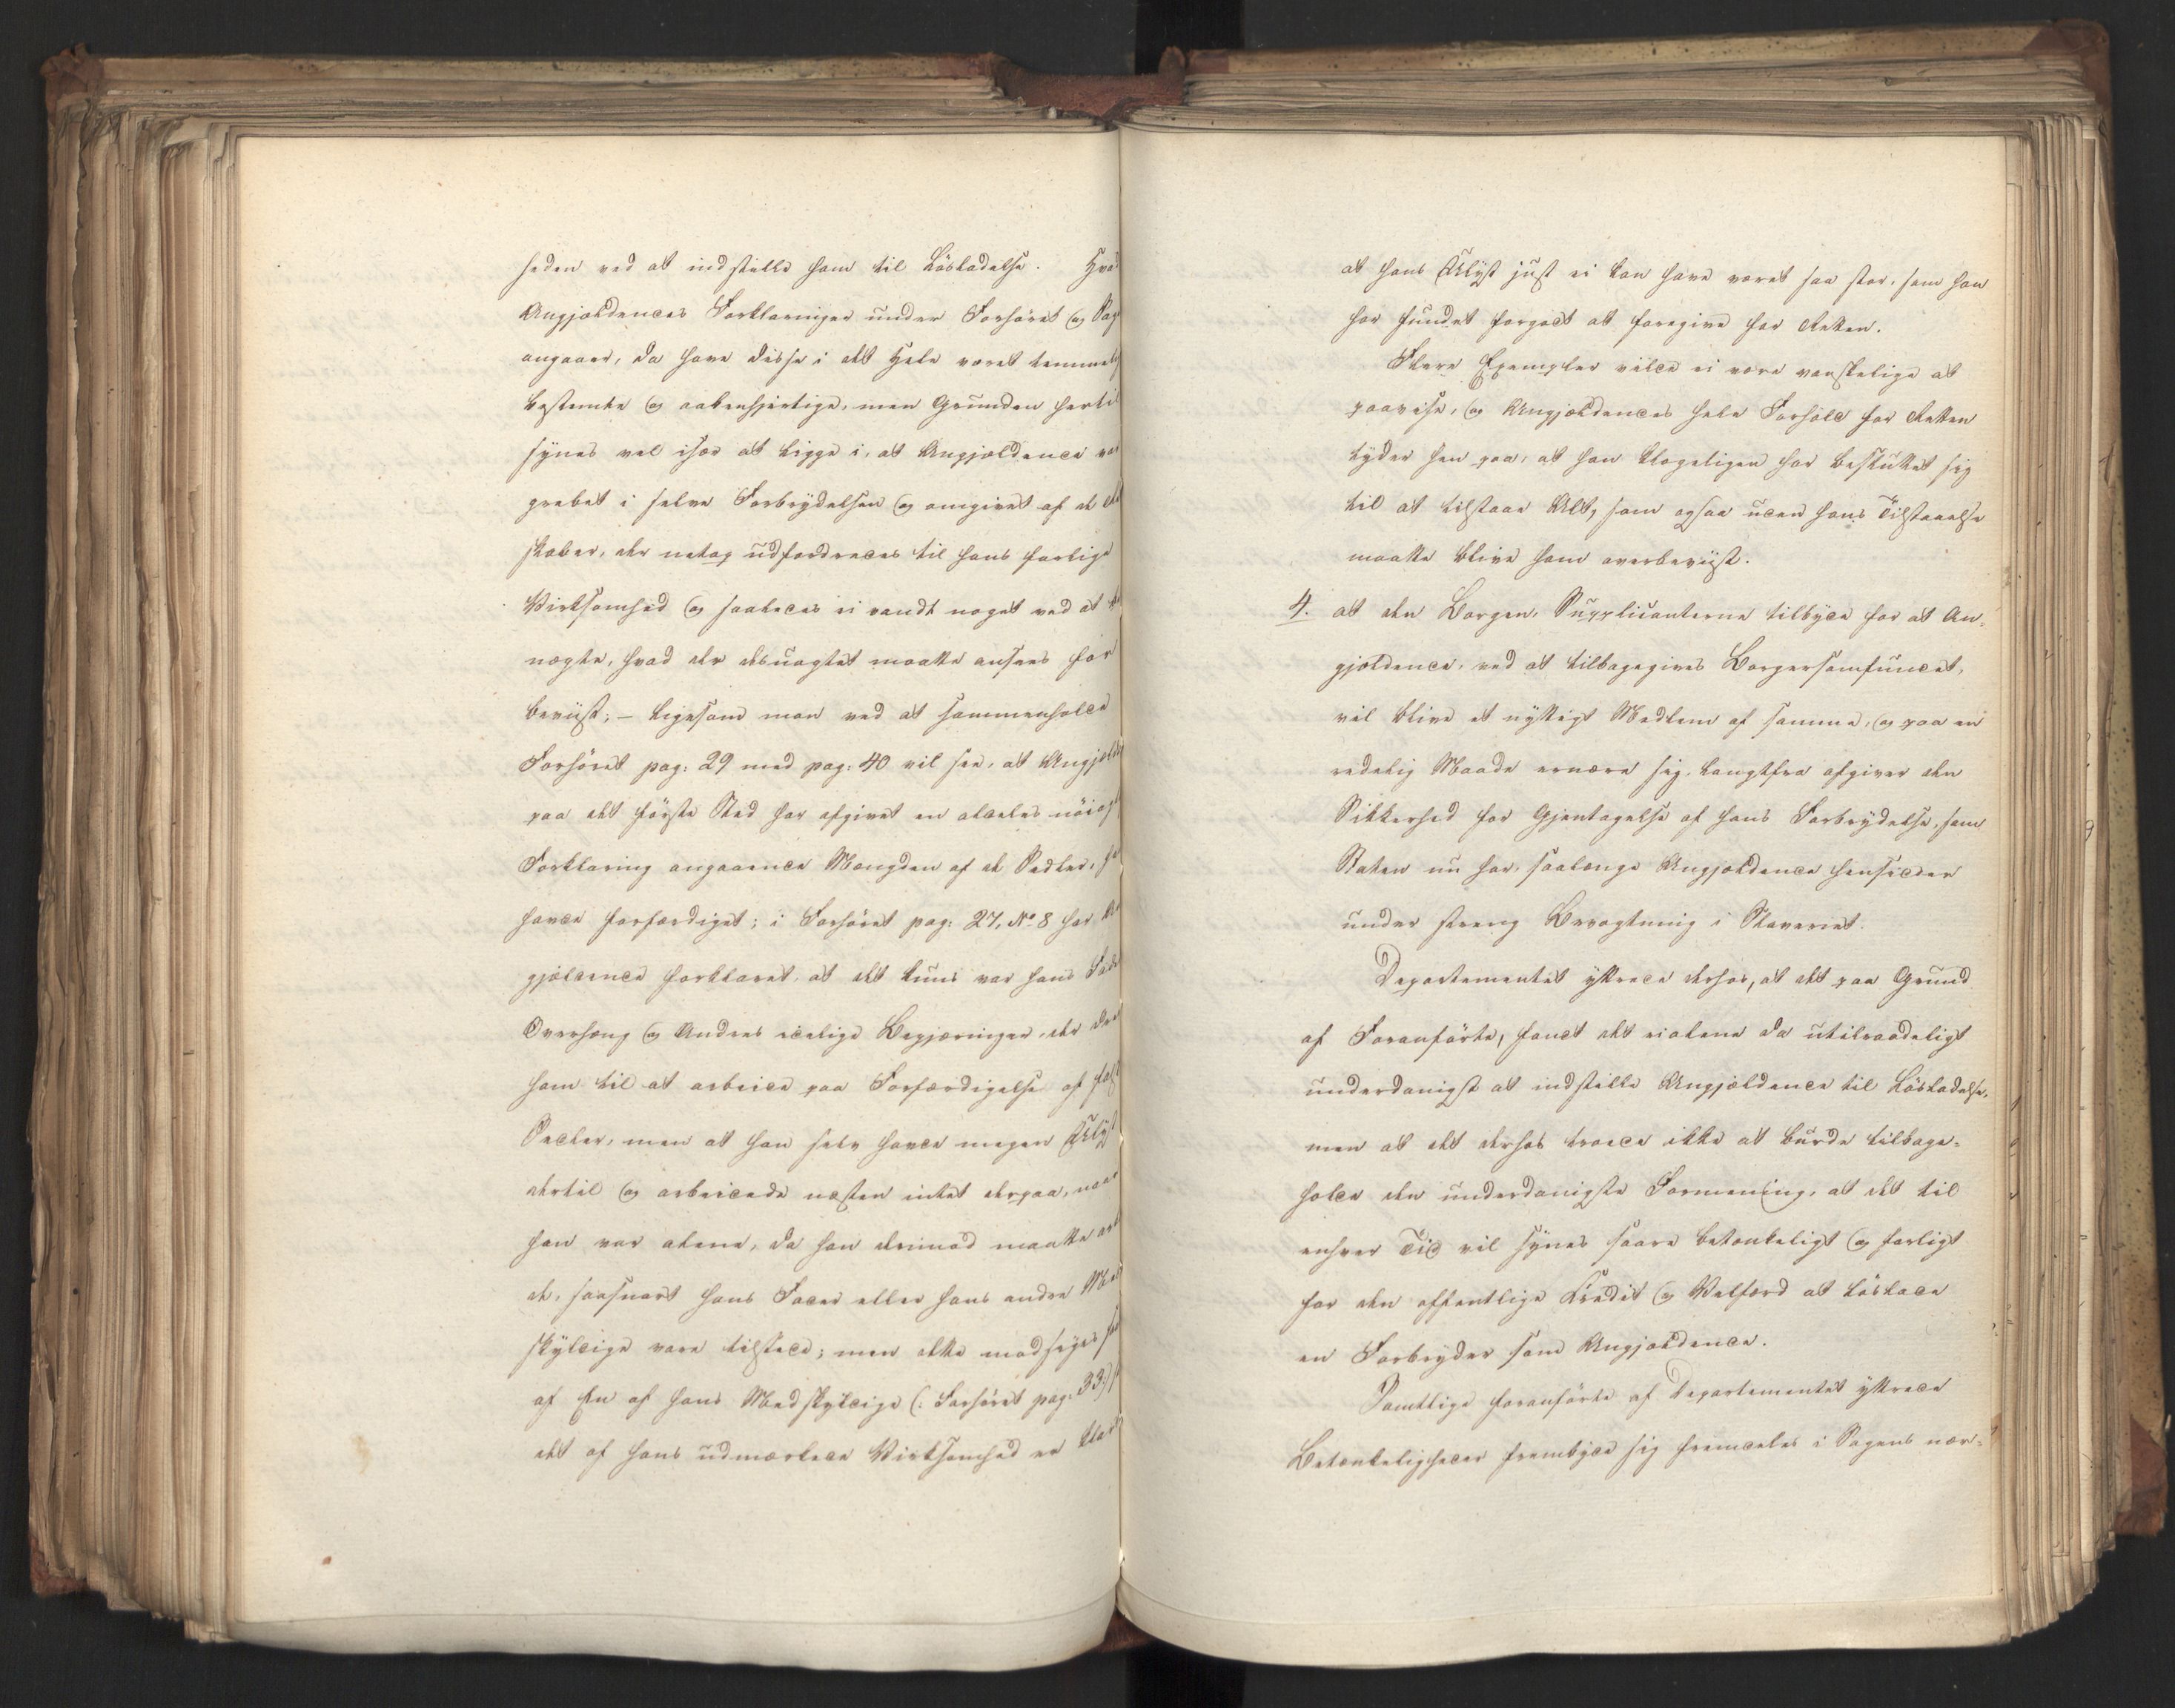 heden ved at indstille ham til Lösladelse. Hvad
Angjældendes Forklaringer under Forhöret og Sagen
angaaer, da have disse i det Hele været temmelig
bestemte og aabenhjertige, men Grunden hertil
synes vel især at ligge i, at Angjældende var
grebet i selve Forbrydelsen og omgivet af de
skaber, der netop udfordredes til hans farlige
Virksomhed og saaledes ei vandt noget ved at
negte, hvad der desuagtet maatte ansees for
beviist; – ligesom man ved at sammenholde
Forhöret pag: 29 med pag: 40 vil see, at Angjæld
paa det förste Sted har afgivet en aldeles nöiagt
Forklaring angaaende Mængden af de Sedler, han
havde forfærdiget; i Forhöret pag: 27, No 8 har An
gjældende forklaret, at det kuns var hans Faders
Overhæng og Andres idelige Begjæringer, der drev
ham til at arbeide paa Forfærdigelse af falske
Sedler, men at han selv havde megen Ulyst
dertil og arbeidede næsten intet derpaa, naar
han var alene, da han derimod maatte arbei
de, saasnart hans Fader eller hans andre Med
skyldige vare tilstede; men dette modsiges
af En af hans Medskyldige (: Forhöret pag: 33:)
det af hans udmærkede Virksomhed er klart
at hans Ulyst just ei kan have været saa stor, som han
har fundet forgodt at foregive for Retten.
Flere Exempler vilde ei være vanskelige at
paavise, og Angjældendes hele Forhold for Retten
tyder hen paa, at han klogeligen har besluttet sig
til at tilstaae Alt, som ogsaa uden hans Tilstaaelse
maatte blive ham overbeviist.
4. at den Borgen, Supplicanterne tilbyde for at An-
gjældende, ved at tilbagegives Borgersamfundet,
vil blive et nyttigt Medlem af samme, og paa en
redelig Maade ernære sig, langtfra afgiver den
Sikkerhed for Gjentagelse af hans Forbrydelse, som
Staten nu har, saalænge Angjældende hensidder
under streng Bevogtning i Slaveriet.
Departementet yttrede derhos, at det paa Grund
af Foranförte, fandt det ei alene da utilraadeligt
underdanigst at indstille Angjældende til Lösladelse,
men at det derhos troede ikke at burde tilbage-
holde den underdanigste Formening, at det til
enhver Tid vil synes saare betænkeligt og farligt
for den offentlige Credit og Velfærd at löslade
en Forbryder som Angjældende.
Samtlige foranförte af Departementet yttrede
Betænkeligheder frembyde sig fremdeles i Sagens nær-